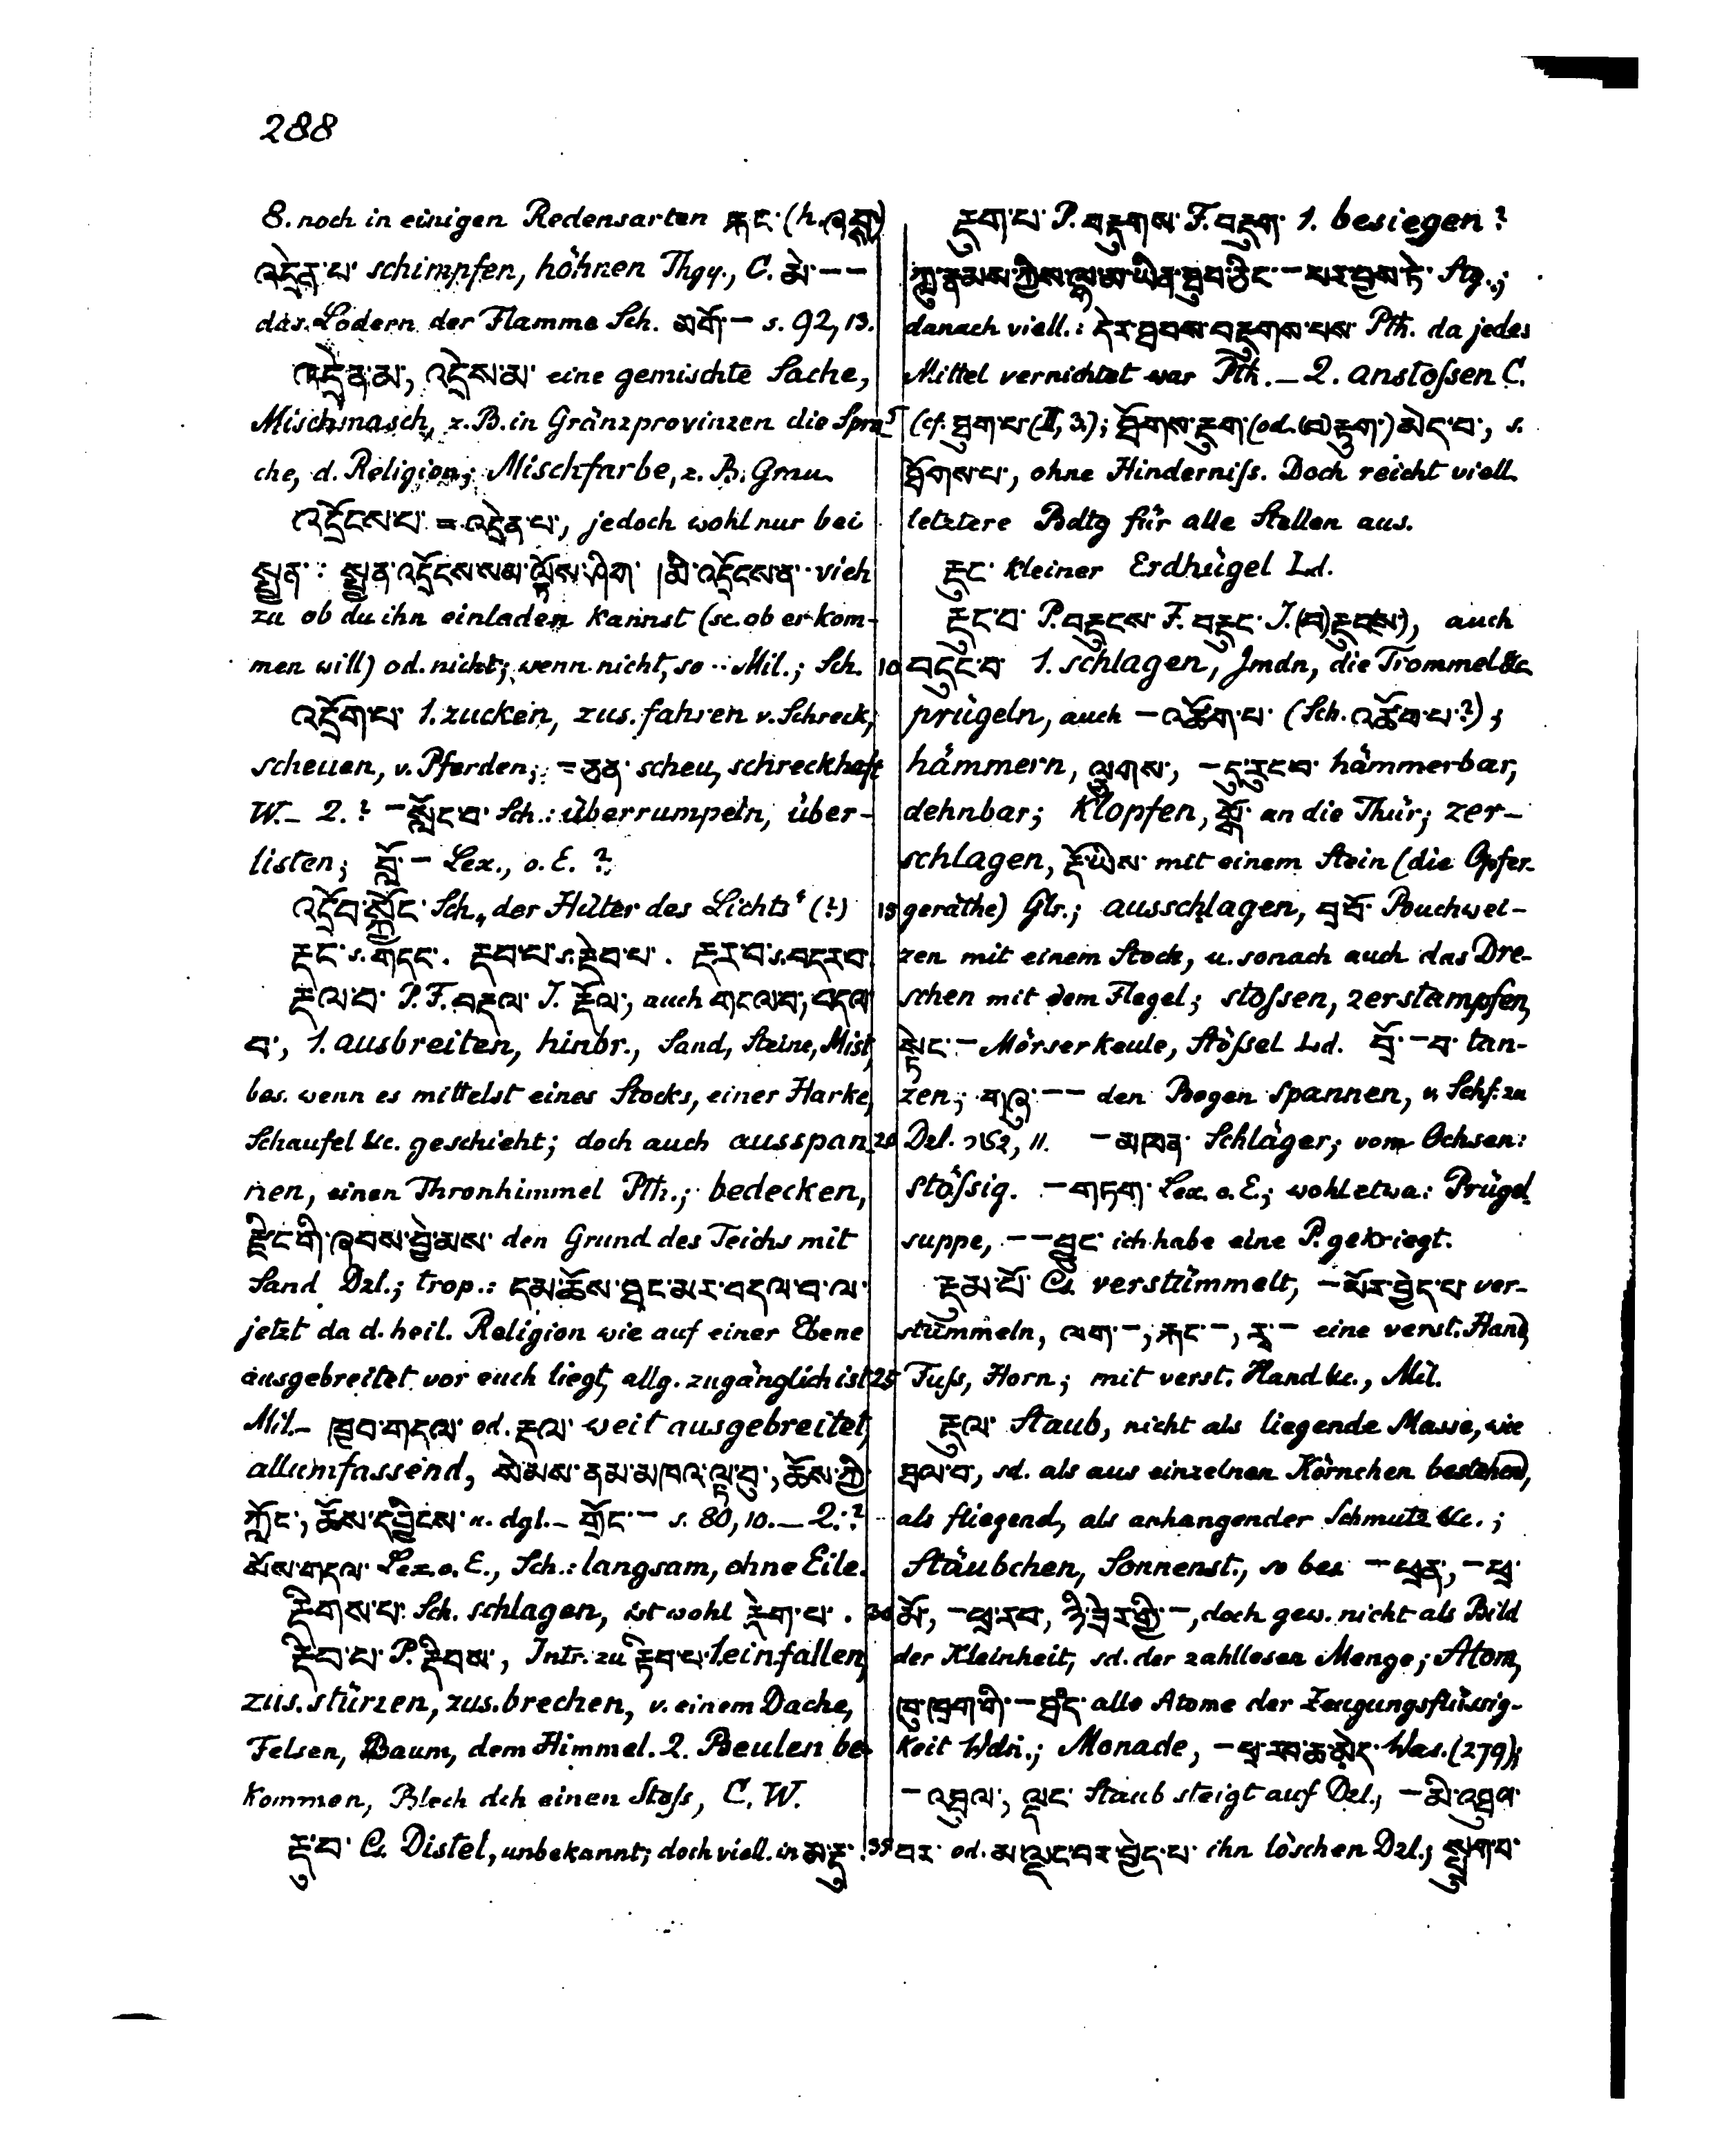 288
8. noch in einigen Redensarten རྐང་ (h. ཞབས་)
འདྲེན་པ་ schimpfen, höhnen Thgy., C. མེ་ – –
das Lodern der Flamme Sch. མགོ་ – s. 92, 13.
འདྲེན་མ་, འདྲེས་མ་ eine gemischte Sache,
Mischmasch, z. B. in Gränzprovinzen die Spra-
che, d. Religion; Mischfarbe, z. B. Grau
འདྲོངས་པ་ = འདྲེན་པ་, jedoch wohl nur bei
སྤྱན་ : སྤྱན་འདྲོངས་སམ་ལྟོས་ཤིག་ ། མི་འདྲོངས་ན་ ·· sieh
zu ob du ihn einladen kannst (sc. ob er kom-
men will) od. nicht; wenn nicht, so ·· Mil.; Sch.
འདྲོག་པ་ 1. zucken, zus. fahren v. Schreck,
scheuen, v. Pferden; – ཅན་ scheu, schreckhaft
W. – 2. ? – སློང་བ་ Sch.: überrumpeln, über-
listen; བློ་ – Lex., o. E. ?
Sch. „der Hüter des Lichts“ (?)
རྡང་ s. གདང་ . རྡབ་པ་ s. རྡེབ་པ་ . རྡར་བ་ s. བདར་བ་
རྡལ་བ་ P. F. བརྡལ་ I. རྡོལ་, auch གདལ་བ་, བདལ་
བ་, 1. ausbreiten, hinbr., Sand, Steine, Mist,
bes. wenn es mittelst eines Stocks, einer Harke,
Schaufel &c. geschieht; doch auch ausspan-
nen, einen Thronhimmel Pth.; bedecken,
རྫིང་གི་ཞབས་བྱེ་མས་ den Grund des Teichs mit
Sand Dzl.; trop.: དམ་ཆོས་ཐང་མར་བདལ་བ་ལ་
jetzt da d. heil. Religion wie auf einer Ebene
ausgebreitet vor euch liegt, allg. zugänglich ist
Mil. – ཁྱབ་གདལ་ od. རྡལ་ weit ausgebreitet,
allumfassend, སེམས་ནམ་མཁའ་ལྟ་བུ་, ཆོས་ཀྱི་
ཀློང་, ཆོས་དབྱིངས་ u. dgl. – གྲོང་ – s. 80, 10. – 2. ?
མོས་གདལ་ Lex. o. E., Sch.: langsam, ohne Eile.
རྡིགས་པ་ Sch. schlagen, ist wohl རྡེག་པ་ .
རྡིབ་པ་ P. རྡིབས་, Intr. zu རྡེབ་པ་ 1. einfallen,
zus. stürzen, zus. brechen, v. einem Dache,
Felsen, Baum, dem Himmel. 2. Beulen be-
kommen, Blech dch einen Stoß, C. W.
རྡུ་བ་ Cs. Distel, unbekannt; doch viell. in མ་རྡུ་ .
རྡུག་པ་ P. བརྡུགས་ F. བརྡུག་ 1. besiegen?
ཀླུ་རྣམས་ཀྱིས་ལྷ་མ་ཡིན་ཐུབ་ཅིང་ – པར་བྱས་ཏེ་ Stg.;
danach viell.: དེར་ཐབས་བརྡུགས་པས་ Pth. da jedes
Mittel vernichtet war Pth. – 2. anstoßen C.
5 (cf. ཐུག་པ་ (II, 3); ཐོགས་རྡུག་ (od. (བ)རྡུག་) མེད་པ་, s.
ཐོགས་པ་, ohne Hinderniß. Doch reicht viell.
letztere Bdtg für alle Stellen aus.
རྡུང་ kleiner Erdhügel Ld.
རྡུང་བ་ P. བརྡུངས་ F. བརྡུང་ I. (བ)རྡུང(ས་), auch
10 བདུང་བ་ 1. schlagen, Jmdn, die Trommel &c
prügeln, auch – འཚོག་པ་ (Sch. འཚོབ་པ་ ?);
hämmern, ལྕགས་, – དུ་རུང་བ་ hämmerbar,
dehnbar; klopfen, སྒོ་ an die Thür; zer-
schlagen, རྡོ་ཡིས་ mit einem Stein (die Opfer-
15 geräthe) Glr.; ausschlagen, བྲ་བོ་ Buchwei-
zen mit einem Stock, u. sonach auch das Dre-
schen mit dem Flegel; stoßen, zerstampfen,
– Mörserkeule, Stößel Ld. བྲོ་ – བ་ tan-
zen; གཞུ་ – – den Bogen spannen, v. Schf. zu
20 Dzl. 262, 11. – མཁན་ Schläger; vom Ochsen:
stößig. – གཏག་ Lex. o. E.; wohl etwa: Prügel-
suppe, – – བྱུང་ ich habe eine P. gekriegt.
རྡུམ་པོ་ Cs. verstümmelt, – པོར་བྱེད་པ་ ver-
stümmeln, ལག་ –, རྐང་ –, རྭ་ – eine verst. Hand,
25 Fuss, Horn; mit verst. Hand &c., Mil.
རྡུལ་ Staub, nicht als liegende Masse, wie
ཐལ་བ་, sd. als aus einzelnen Körnchen bestehend,
als fliegend, als anhangender Schmutz &c.;
Stäubchen, Sonnenst., so bes – ཕྲན་, – ཕྲ་
30 མོ་, – ཕྲ་རབ་, ཉི་ཟེར་གྱི་ –, doch gew. nicht als Bild
der Kleinheit, sd. der zahllosen Menge; Atom,
ཁུ་ཁྲག་གི་ – alle Atome der Zeugungsflüssig-
keit Wdn.; Monade, – ཕྲ་རབ་ཆ་མེད་ Was. (279);
– འཐུལ་, ལྡང་ Staub steigt auf Dzl., – མི་འཐུལ་
35 བར་ od. མ་ལྡང་བར་བྱེད་པ་ ihn löschen Dzl.; སྤྲུག་པ་